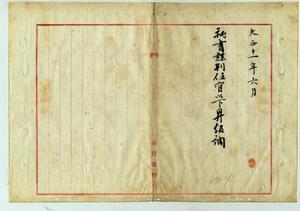 大正十一年六月
秘書課判任官以下昇級調